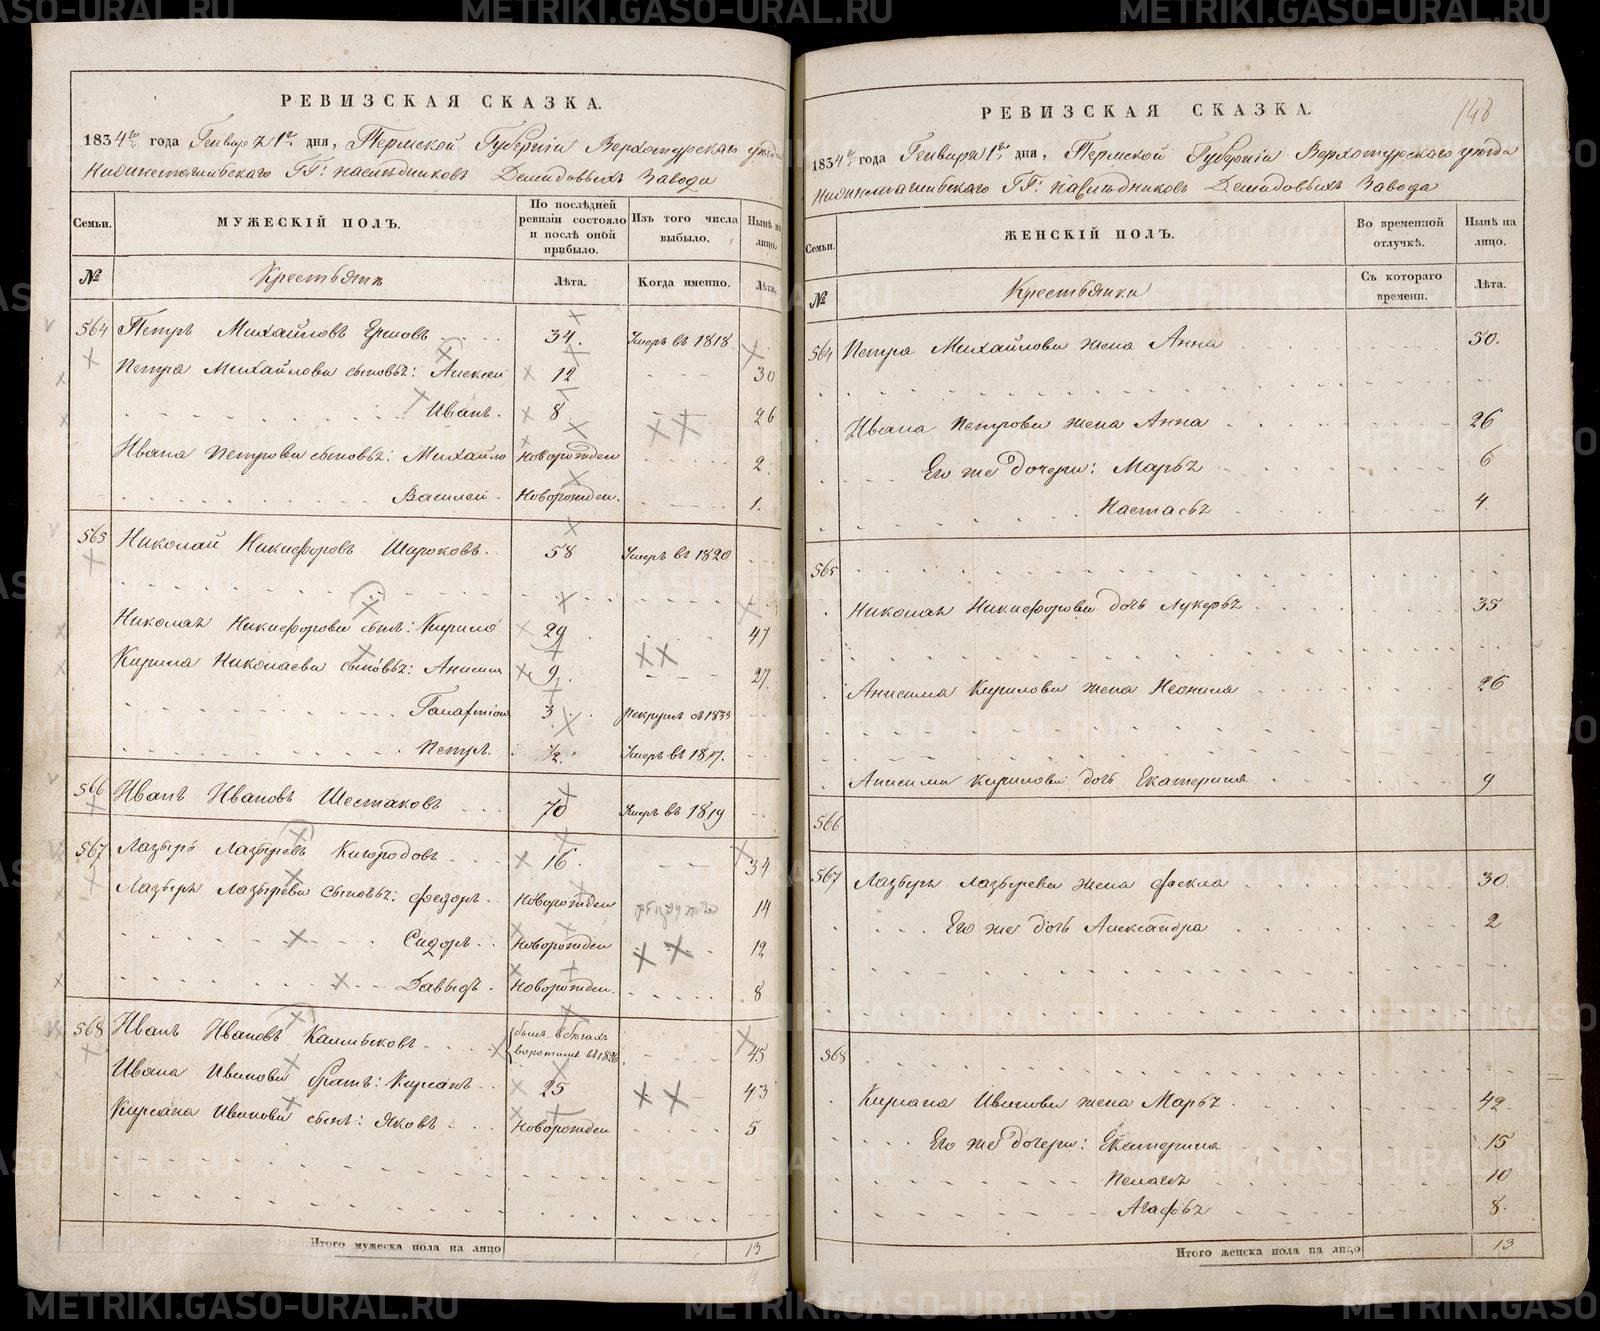 РЕВИЗСКАЯ СКАЗКА.
1834го года Генваря 21го дня, Пермской Губерніи Верхотурскаго уѣзда
Нижнетагильскаго ГГ: наслѣдниковъ Демидовыхъ Завода
Семьи. МУЖЕСКІЙ ПОЛЪ. По послѣдней ревизіи состояло и послѣ оной прибыло. Изъ того числа выбыло. Нынѣ на лицо.
№ Крестьяне Лѣта. Когда именно. Лѣта.
564 Петръ Михайловъ 34. Умеръ въ 1818
Петра Михайлова сыновья: Алексей 12 30
Иванъ. 8 26
Ивана Петрова сыновья: Михайло Новорожден 2.
Василей Новорожден. 1.
565 Николай Никифоровъ Широковъ. 58 Умеръ въ 1820
Николая Никифорова сынъ: Кирило 29 47
Кирила Николаева сыновья: Анисим 9. 27.
3 Рекрутъ въ 1833
Петръ. ½. Умеръ въ 1817.
566 Иванъ Ивановъ Шестаковъ 70 Умеръ въ 1819
567 Лазырь Лазыревъ 16. 34
Лазыря Лазырева сыновья: Федоръ Новорожден 14
Сидоръ Новорожден 12
Давыдъ. Новорожден. 8
568 Иванъ Ивановъ былъ в бѣгахъ воротился въ 1826 45
Ивана Иванова братъ: Кирсанъ 25 43
Кирсана Иванова сынъ: Яковъ Новорожден 5
Итого мужеска пола на лицо 13
148
РЕВИЗСКАЯ СКАЗКА.
1834го года Генваря 1го дня, Пермской Губерніи Верхотурскаго уѣзда
Нижнетагильскаго ГГ: наслѣдниковъ Демидовыхъ Завода
Семьи. ЖЕНСКІЙ ПОЛЪ. Во временной отлучкѣ. Нынѣ на лицо.
№ Крестьянки Съ котораго времени. Лѣта.
564 Петра Михайлова жена Анна 50.
Ивана Петрова жена Анна 26
Его же дочери: Марья 6
Настасья 4.
565
Николая Никифорова дочь Лукерья 35
Анисима Кирилова жена Неонила 26
Анисима Кирилова дочь Екатерина 9
566
567 Лазыря Лазырева жена Фекла 30.
Его же дочь Александра 2
568
Кирсана Иванова жена Марья 42.
Его же дочери: Екатерина 15
Пелагея 10
Агафья 8.
Итого женска пола на лицо 13
METRIKI.GASO-URAL.RU